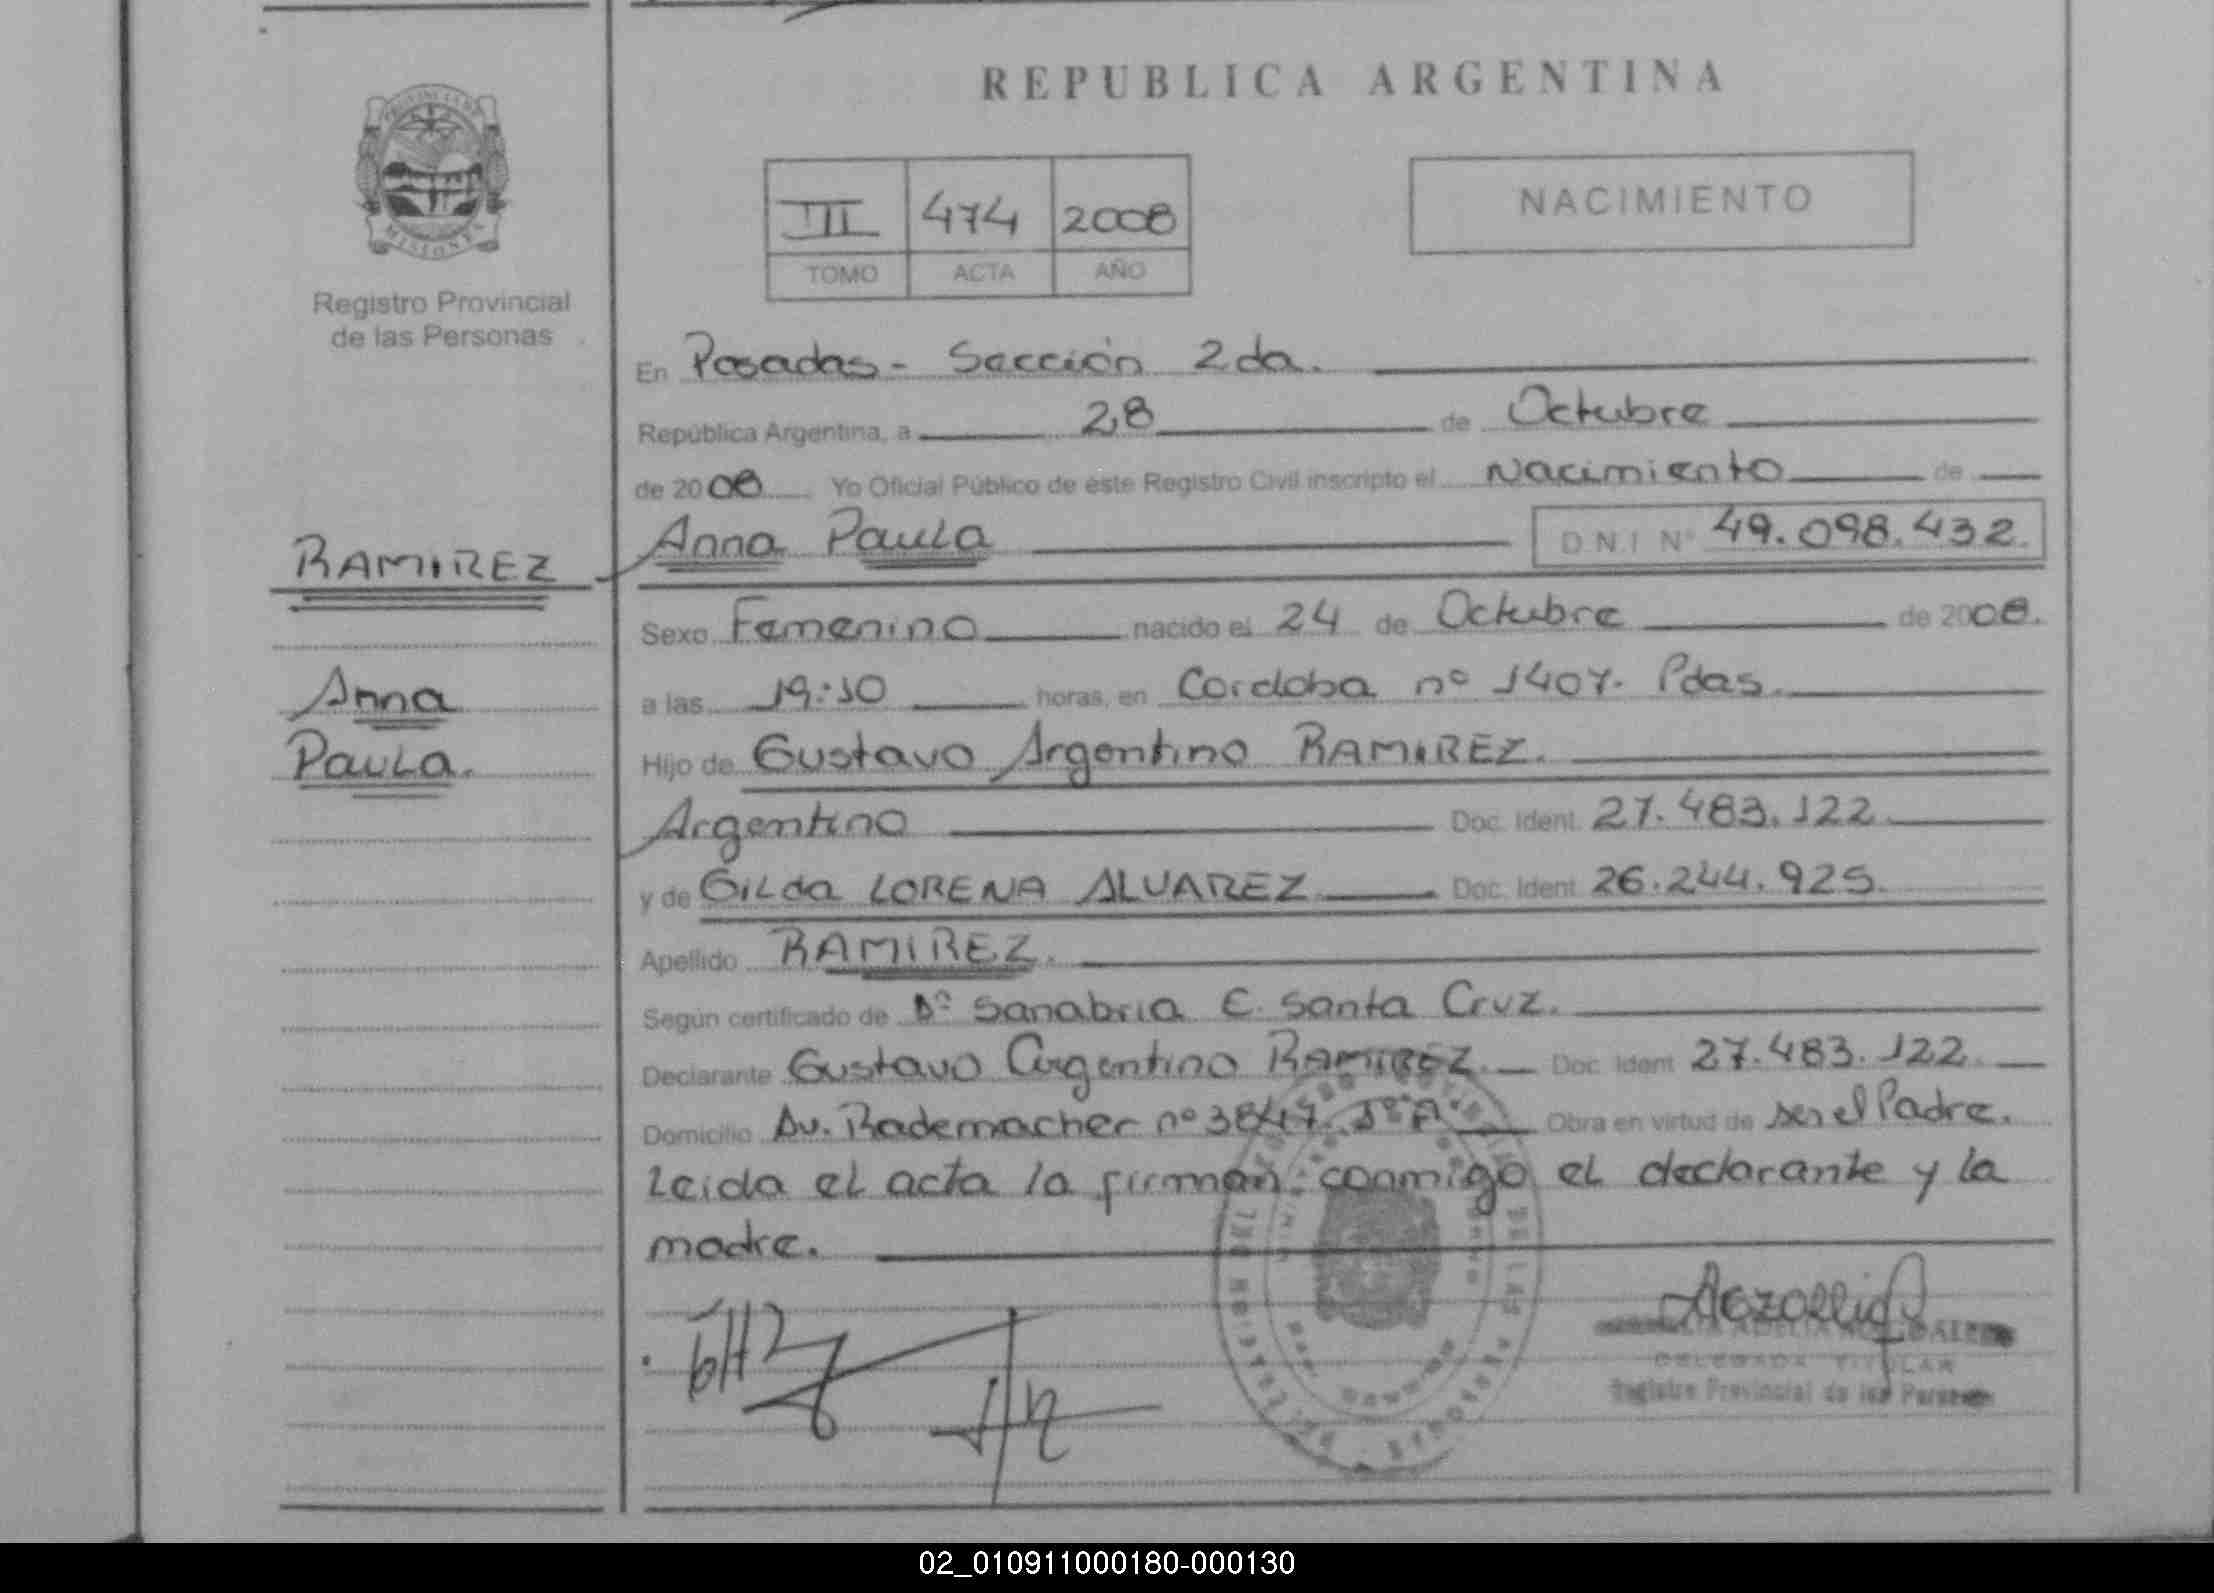 REPUBLICA ARGENTINA
PROVINCIA DE
MISIONES
Registro Provincial
de las Personas
III 474 2008
TOMO ACTA AÑO
NACIMIENTO
En Posadas - Sección 2da.
República Argentina, a 28 de Octubre
de 2008 Yo Oficial Público de este Registro Civil inscripto el Nacimiento de
RAMIREZ Anna Paula D N I Nº 49.098.432.
Sexo Femenino nacido el 24 de Octubre de 2008.
Anna
Paula.
a las 19:10 horas, en Cordoba nº 1407. Pdas.
Hijo de Gustavo Argentino RAMIREZ.
Argentino Doc. Ident. 27.483.122
y de GILda LORENA ALVAREZ Doc. Ident. 26.244.925.
Apellido RAMIREZ.
Según certificado de Dª Sanabria C. Santa Cruz.
Declarante Gustavo Argentino RAMIREZ. Doc. Ident 27.483.122
Domicilio Av. Rademacher nº 3847 1º "A" Obra en virtud de ser el Padre.
Leida el acta la firman conmigo el declarante y la
madre.
DELEGADA TITULAR
Registro Provincial de las Personas
02_010911000180-000130